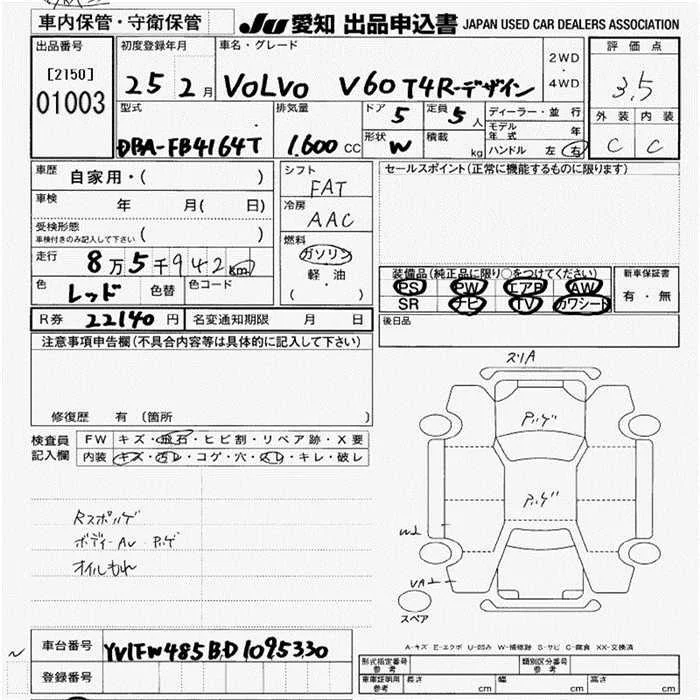 車内保管・守衛保管
JU 愛知 出品申込書 JAPAN USED CAR DEALERS ASSOCIATION
出品番号
[2150]
01003
初度登録年月
25 2月
車名・グレード
VOLVO V60 T4 R-デザイン
2WD
・
4WD
評価点
3.5
外装 内装
C C
型式
DBA-FB4164T
排気量
1.600 CC
ドア 5
定員 5人
形状 W
積載 kg
ディーラー・並行
モデル年式 年
ハンドル 左 右
車歴 自家用・( )
車検 年 月( 日)
受検形態
車検付きのみ記入して下さい ( )
走行 8万5千942km
色 レッド 色替 色コード
シフト
FAT
冷房
AAC
燃料
ガソリン
軽・油
( ・ )
セールスポイント(正常に機能するものに限ります)
装備品(純正品に限り○をつけてください)
PS PW エアB AW
SR ナビ TV カワシート
新車保証書
有・無
R券 22140円 名変通知期限 月 日
後日品
注意事項申告欄(不具合内容等は具体的に記入して下さい)
修復歴 有 (箇所
検査員
記入欄
FW キズ・飛石・ヒビ割・リペア跡・X要
内装 キズ・汚レ・コゲ・穴・スレ・キレ・破レ
Rスポルゲ
ボディーAU・Pルゲ
オイルもれ
スリA
Pルゲ
Pルゲ
W1
UA1
スペア
A-キズ E-エクボ U-凹み W-補修跡 S-サビ C-腐食 XX-交換済
車台番号 YV1FW485BD1095330
登録番号
形式指定番号
参考
類別区分番号
参考
車庫証明用
参考
長さ cm 幅 cm 高さ cm